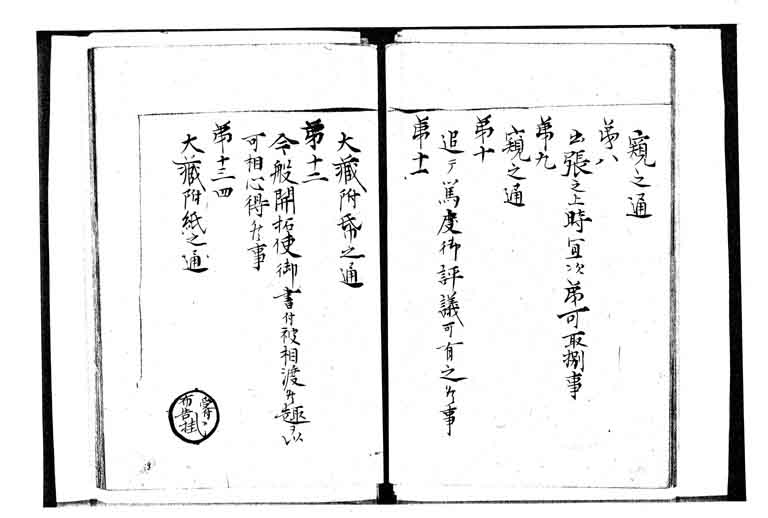 窺之通
第八
出張之上時宜次第可取捌事
第九
窺之通
第十
追テ篤度御評議可有之候事
第十一
大蔵附紙之通
第十二
今般開拓使御書付被相渡候趣ヲ以
可相心得候事
第十三四
大蔵附紙之通
受付
布告掛